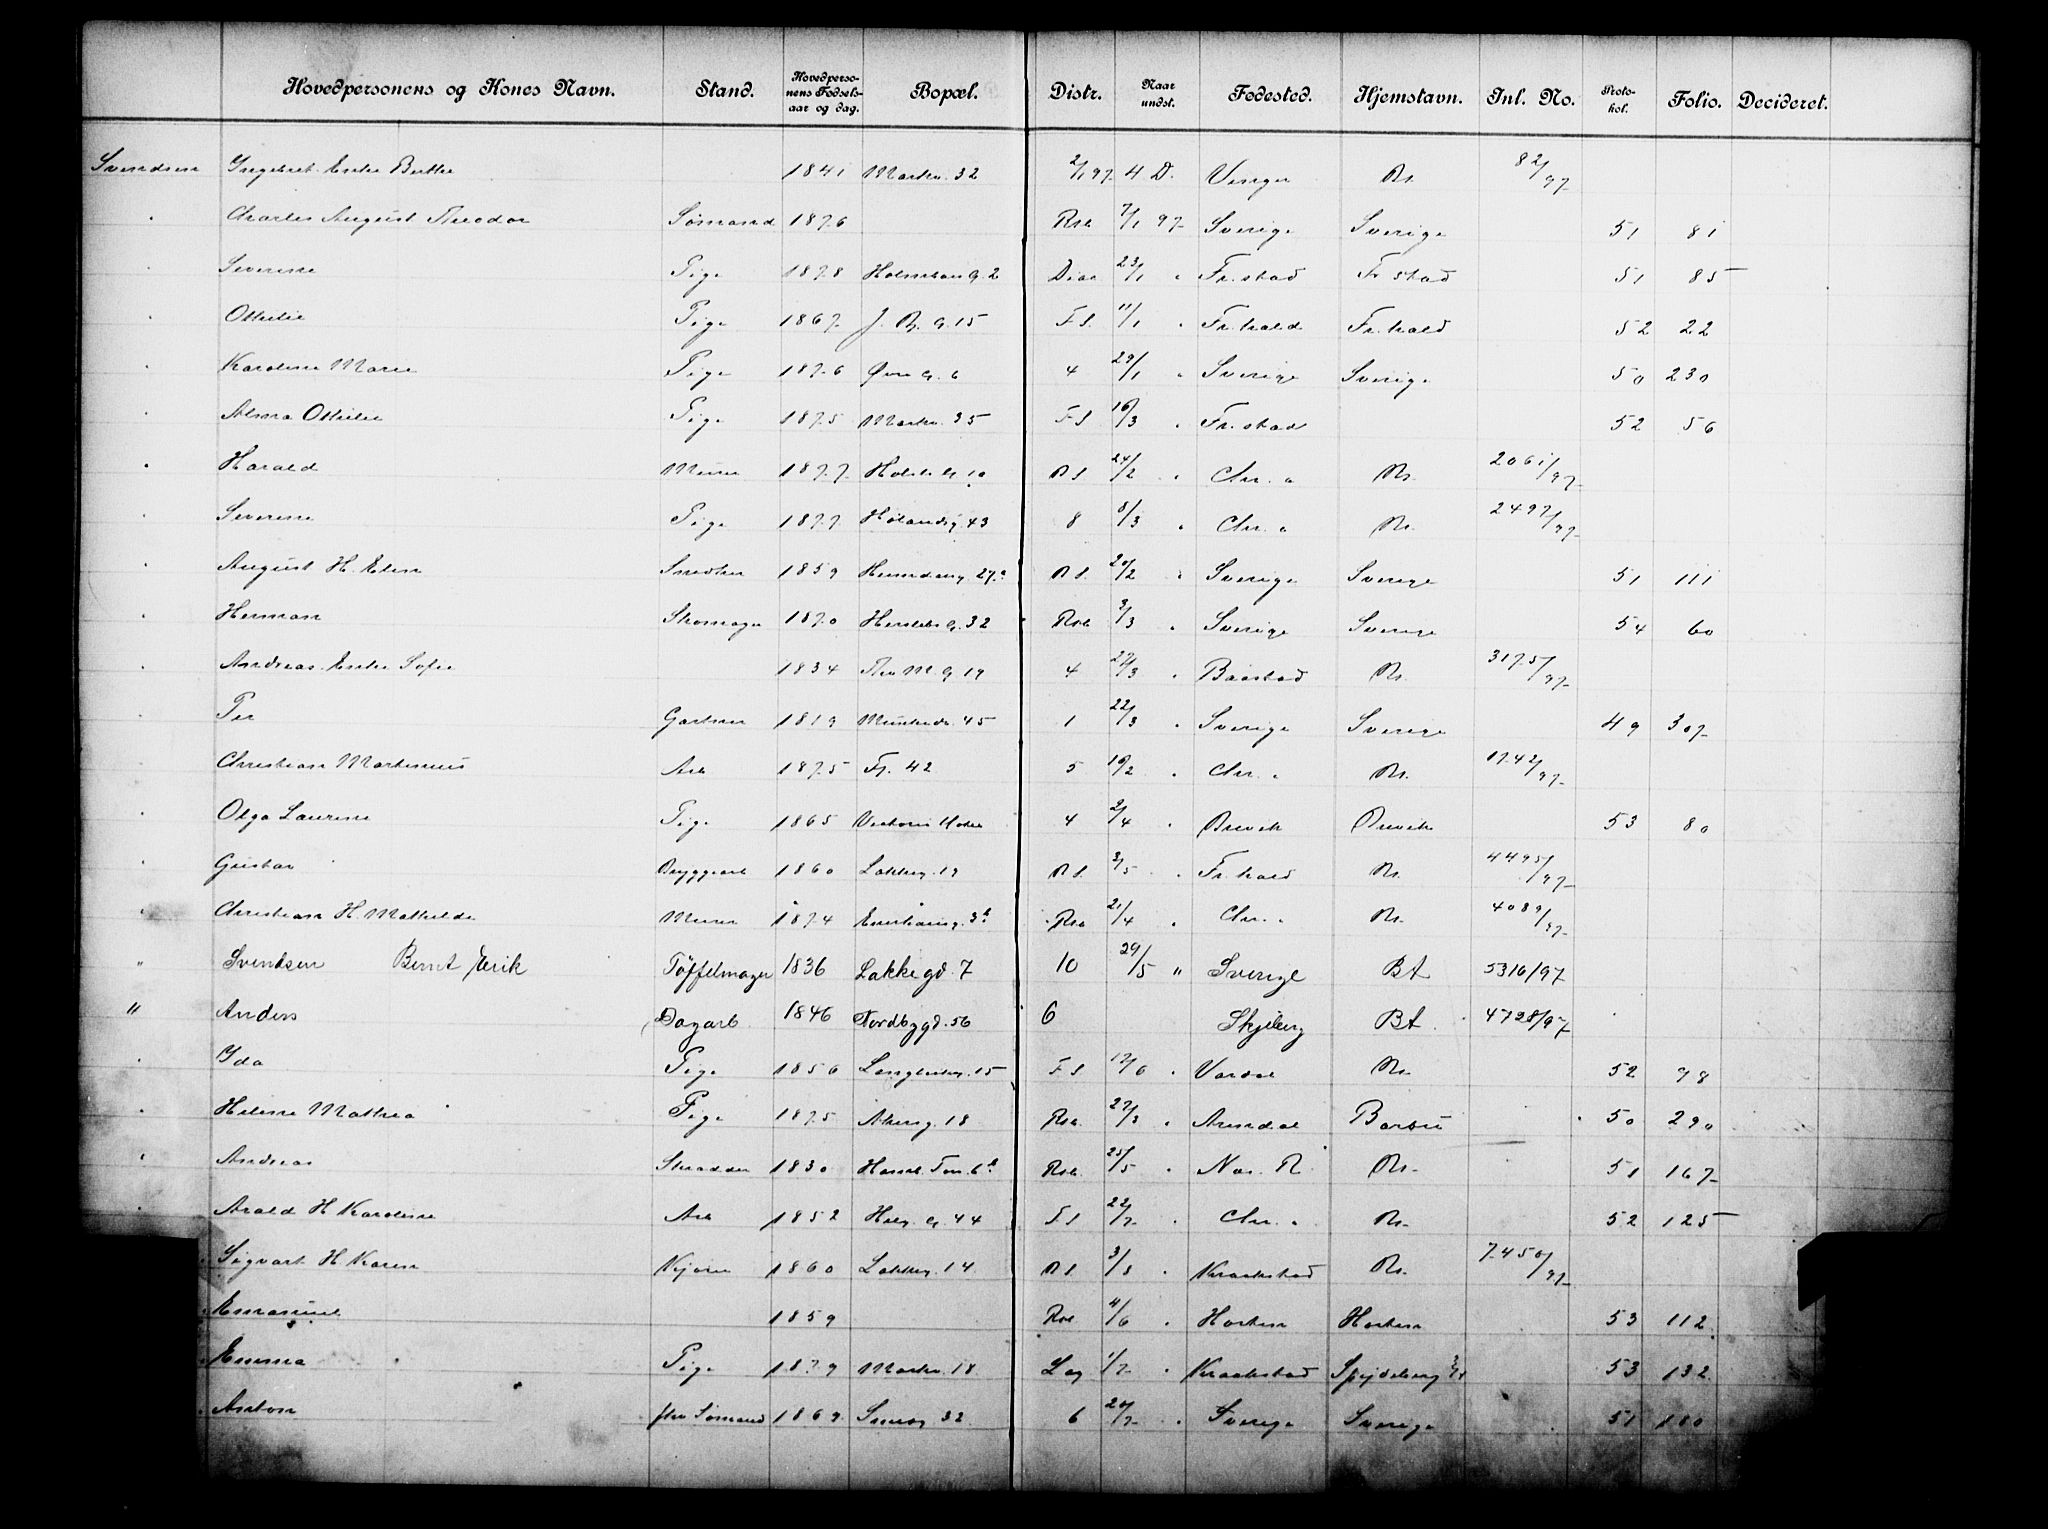 Hovedpersonens og Kones Navn. Stand. Hovedperso-nens Fødsels-aar og dag. Bopæl. Distr. Naar undst. Fødested. Hjemstavn. Inl. No. Proto-kol. Folio. Decideret.
Svendsen Ingebret Enke Berthe 1841 Markv. 32 2/1 97 4 D. Vinger Kr. 82/97
" Charles August Theodor Sømand 1876 Rsb 7/1 97 Sverige Sverige 51 81
" Severine Pige 1878 Holmboeg. 2 23/1 " Fr.stad Fr stad 51 85
" Ottilie Pige 1867 J. B. G. 15 F S. 11/1 " Fr.hald Fr.hald 52 22
" Karoline Marie Pige 1876 Øvre G. 6 4 29/1 " Sverige Sverige 50 230
" Alma Ottilie Pige 1875 Markv. 35 F S. 16/3 " Fr.stad 52 56
" Harald Murer 1877 Holst. G 10 24/2 " Chr. a Kr. 2061/97
" Severine Pige 1877 43 8 8/3 " Chr. a Kr. 2497/97
" August H. Elen Snedker 1859 Heimdalsg. 27 20/2 " Sverige Sverige 51 111
" Herman Skomager 1870 Herslebs G. 32 Rsb 3/3 " Sverige Sverige 54 60
" Andreas Enke Sofie 1834 Thv M G 19 4 27/3 " Baastad Kr. 3175/97
" Per Gartner 1819 Munkeds. 45 1 22/3 " Sverige Sverige 49 307
" Christian Martinius Arb 1875 Fr. 42 5 16/2 " Chr. a Kr. 1742/97
" Olga Laurine Pige 1865 Victoria Hotel 4 2/4 " Brevik Brevik 53 80
" Gustav Bryggearb 1860 Lakkeg. 19 3/5 " Fr.hald Kr. 4495/97
" Christian H. Mathilde Murer 1874 3 Rsb 21/4 " Chr. a Kr. 4089/97
" Svendsen Bernt Erik Töffelmager 1836 Lakkegd. 7 10 29/5 " Sverige BA 5316/97
" Anders Dagarb 1846 Nordbygd. 56 6 Skjeberg BA 4728/97
" Ida Pige 1856 15 F S 12/6 " Vardal Kr. 52 98
" Helene Mathea Pige 1875 Akersg. 18 Rsb. 27/3 " Arendal Barbu 50 290
" Andreas Skrædder 1830 Rsb. 25/5 " Nes. R. Kr. 51 167
" Arald H Karoline Arb 1852 Helg. G 44 F S 22/7 " Chr. a Kr. 52 125
" Sigvart H. Karen Kjører 1860 Lakkeg. 14 3/8 " Kraakstad Kr. 7450/97
" Emanuel 1859 Rsb. 4/6 " Horten Horten 53 112
" Emma Pige 1879 Markv. 18 1/7 " Kraakstad Spydeberg 53 132
" Anton fhv Sømand 1869 Smeg. 32 6 20/7 " Sverige Sverige 51 180